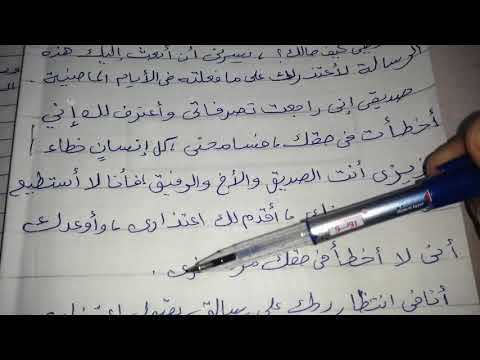 كيف حالك؟، يسرني أن أبعث إليك هذه
الرسالة لأعتذر لك على ما فعلته في الأيام الماضية.
صديقي إني راجعت تصرفاتي وأعترف لك إني
أخطأت في حقك، فسامحني، كل إنسانٍ خطاء!
عزيزي أنت الصديق والأخ والرفيق، فأنا لا أستطيع
، أقدم لك اعتذاري، وأوعدك
أني لا أخطأ في حقك
أنا في انتظار ردك على
روتو